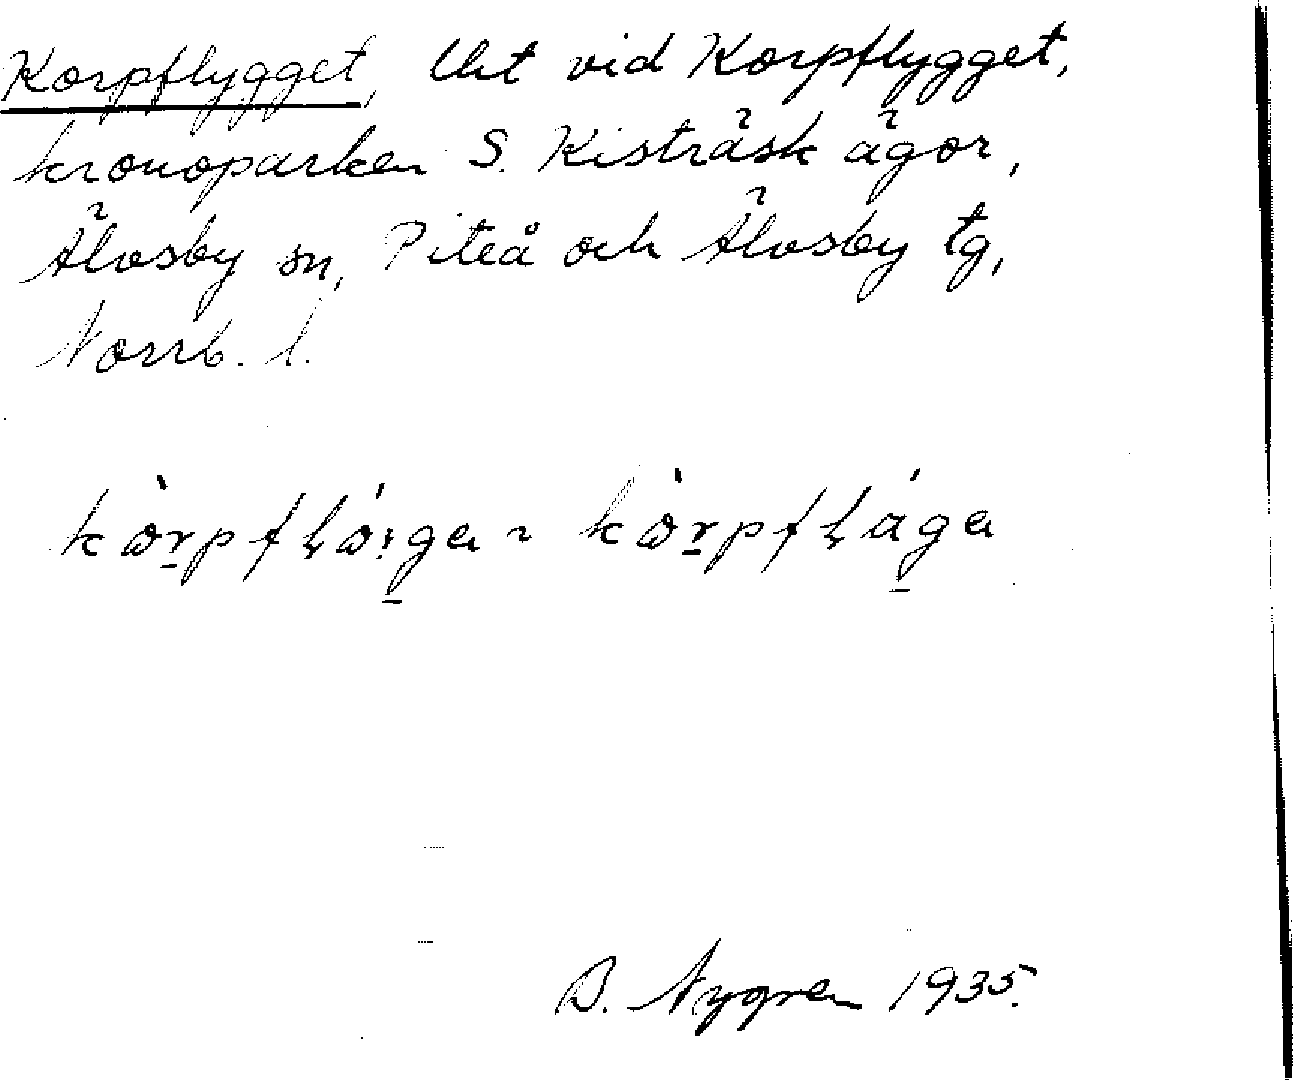 Korpflygget, Utt vid Korpflygget,
kronoparken S. Kisträsk ägor,
Älvsby sn, Piteå och Älvsby tg,
Norrb. l.
B. Nygren 1935.